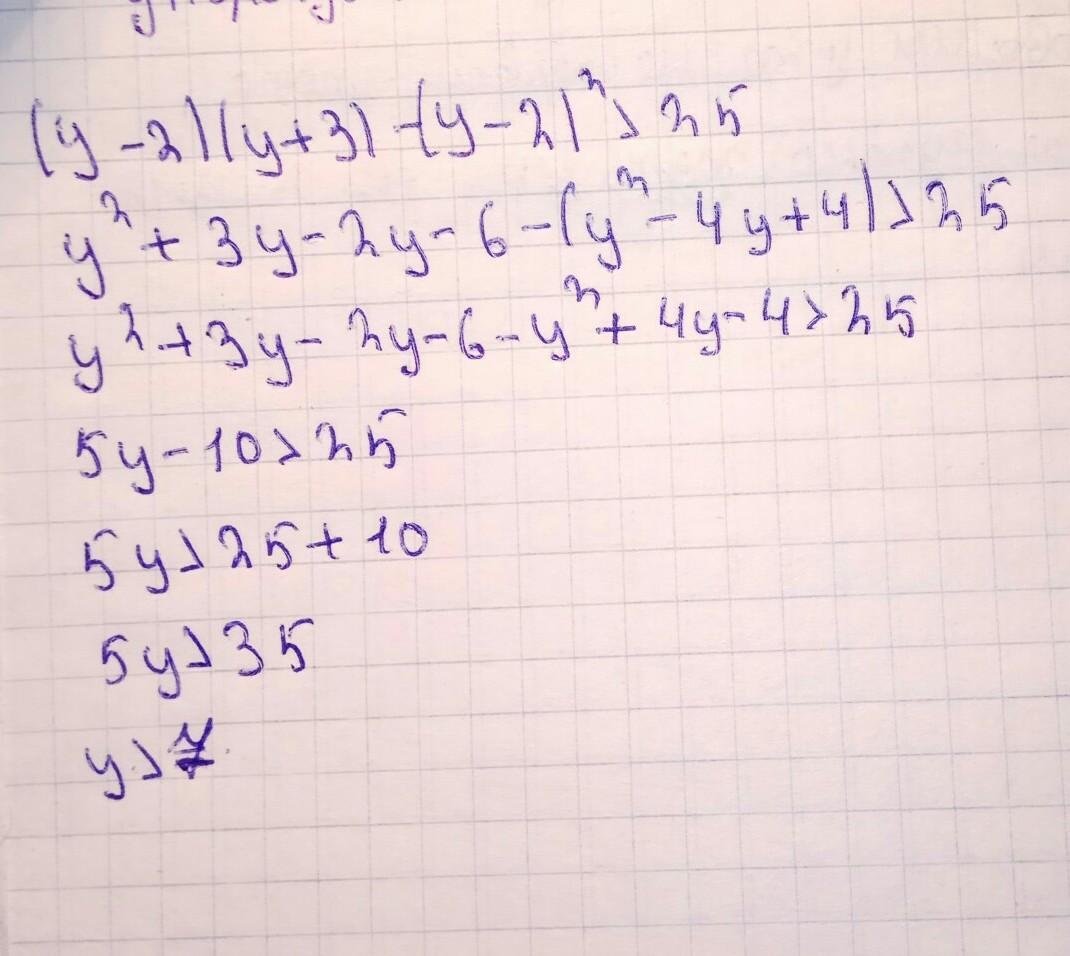 (y-2)(y+3)-(y-2)²>25
y²+3y-2y-6-(y²-4y+4)>25
y²+3y-2y-6-y²+4y-4>25
5y-10>25
5y>25+10
5y>35
y>7